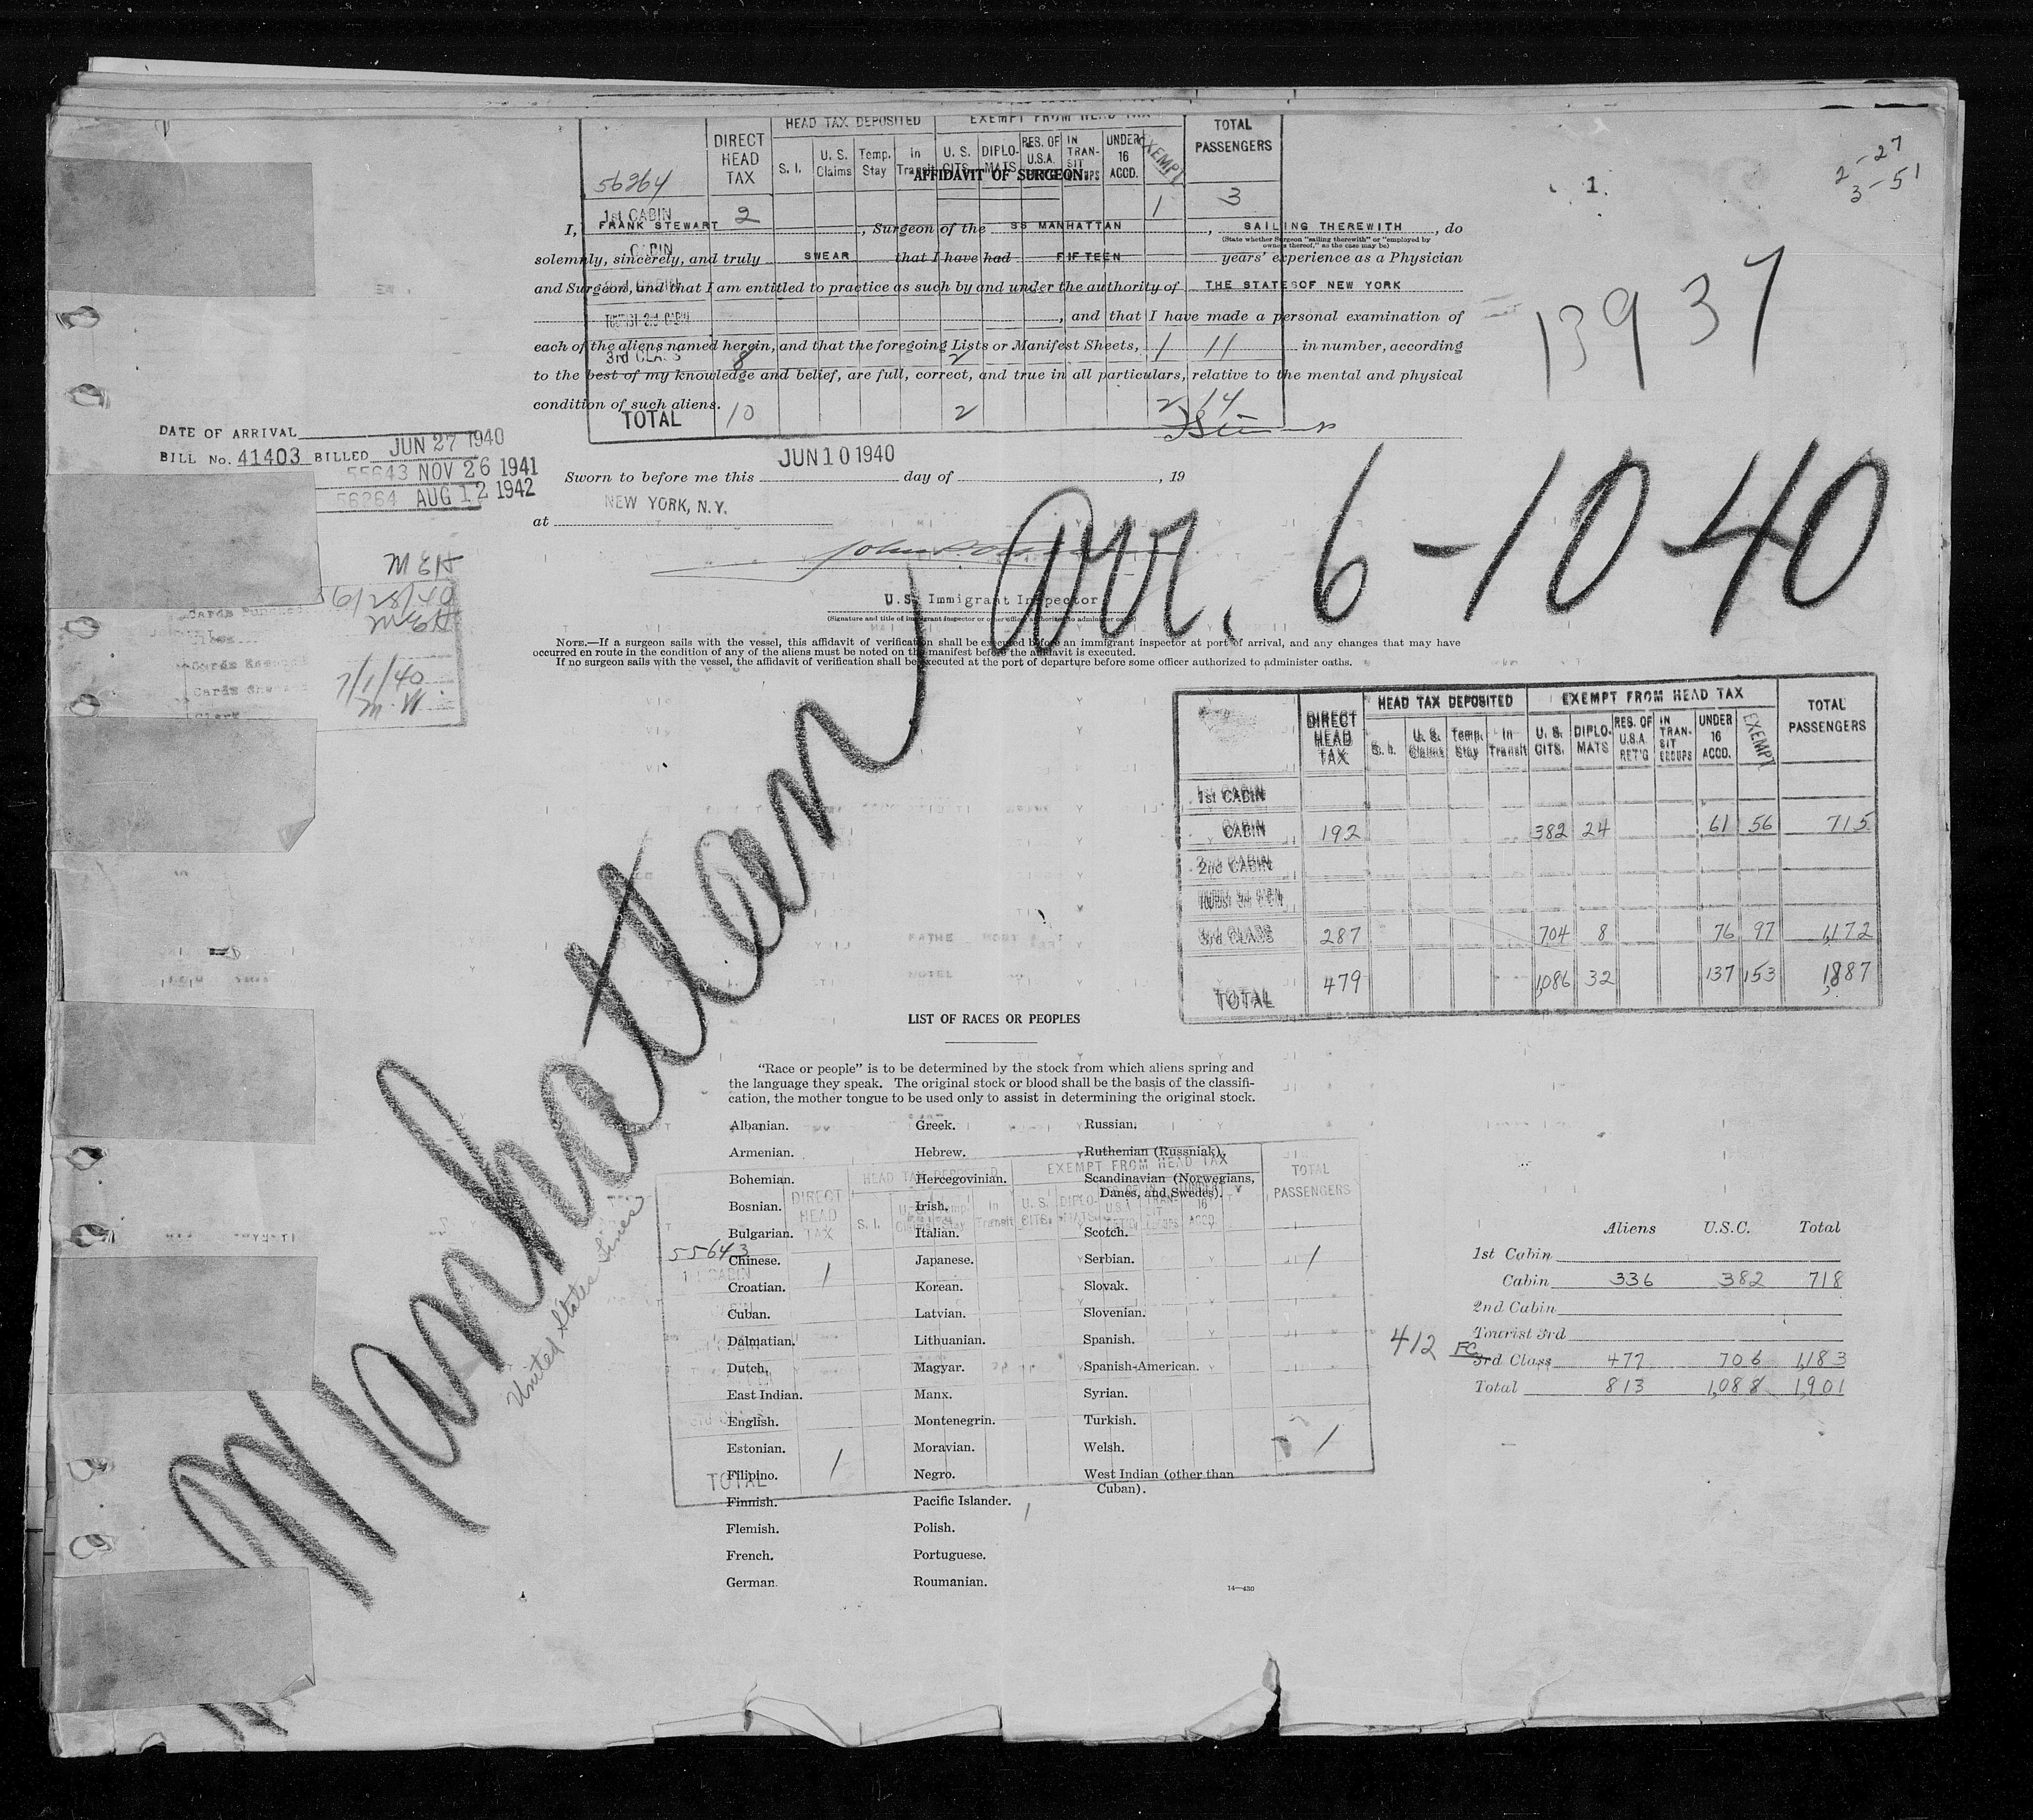 HEAD TAX DEPOSITED EXEMPT FROM HEAD TAX TOTAL PASSENGERS
DIRECT HEAD TAX S. I. U. S. Claims Temp. Stay In Transit U. S. CITS. DIPLO- MATS RES. OF U.S.A. IN TRAN- SIT GROUPS UNDER 16 ACCD. EXEMPT
2-27
3-51
1.
56264
AFFIDAVIT OF SURGEON
1st CABIN 2 1 3
I, FRANK STEWART, Surgeon of the SS MANHATTAN, SAILING THEREWITH, do
(State whether Surgeon "sailing therewith" or "employed by owners thereof," as the case may be)
CABIN
solemnly, sincerely, and truly SWEAR that I have had FIFTEEN years' experience as a Physician
and Surgeon, and that I am entitled to practice as such by and under the authority of THE STATES OF NEW YORK
TOURIST 3rd CABIN
, and that I have made a personal examination of
each of the aliens named herein, and that the foregoing Lists or Manifest Sheets, in number, according
3rd CLASS 8 2 1 11
to the best of my knowledge and belief, are full, correct, and true in all particulars, relative to the mental and physical
condition of such aliens.
TOTAL 10 2 2 14
13937
DATE OF ARRIVAL
BILL No. 41403 BILLED JUN 27 1940
55643 NOV 26 1941
56264 AUG 12 1942
Sworn to before me this JUN 10 1940 day of , 19
at NEW YORK, N.Y.
Arr. 6-10-40
U.S. Immigrant Inspector
(Signature and title of immigrant inspector or other officer authorized to administer oaths)
NOTE.—If a surgeon sails with the vessel, this affidavit of verification shall be executed before an immigrant inspector at port of arrival, and any changes that may have
occurred en route in the condition of any of the aliens must be noted on the manifest before the affidavit is executed.
If no surgeon sails with the vessel, the affidavit of verification shall be executed at the port of departure before some officer authorized to administer oaths.
7/1/40
Manhattan
United States Lines
DIRECT HEAD TAX HEAD TAX DEPOSITED EXEMPT FROM HEAD TAX TOTAL PASSENGERS
S. I. U. S. Claims Temp. Stay In Transit U. S. CITS. DIPLO- MATS RES. OF U.S.A. RET'G IN TRAN- SIT GROUPS UNDER 16 ACCD. EXEMPT
1st CABIN
CABIN 192 382 24 61 56 715
2nd CABIN
TOURIST 3rd CABIN
3rd CLASS 287 704 8 76 97 1,172
TOTAL 479 1,086 32 137 153 1,887
LIST OF RACES OR PEOPLES
"Race or people" is to be determined by the stock from which aliens spring and
the language they speak. The original stock or blood shall be the basis of the classifi-
cation, the mother tongue to be used only to assist in determining the original stock.
Albanian. Greek. Russian.
Armenian. Hebrew. Ruthenian (Russniak).
Bohemian. Hercegovinian. Scandinavian (Norwegians,
Danes, and Swedes).
Bosnian. Irish.
Bulgarian. Italian. Scotch.
Chinese. Japanese. Serbian.
Croatian. Korean. Slovak.
Cuban. Latvian. Slovenian.
Dalmatian. Lithuanian. Spanish.
Dutch. Magyar. Spanish-American.
East Indian. Manx. Syrian.
English. Montenegrin. Turkish.
Estonian. Moravian. Welsh.
Filipino. Negro. West Indian (other than
Cuban).
Finnish. Pacific Islander.
Flemish. Polish.
French. Portuguese.
German. Roumanian.
14—430
HEAD TAX DEPOSITED EXEMPT FROM HEAD TAX TOTAL PASSENGERS
DIRECT HEAD TAX S. I. In Transit U. S. CITS. DIPLO- MATS
55643
1st CABIN 1 1
TOTAL 1 1
Aliens U.S.C. Total
1st Cabin
Cabin 336 382 718
2nd Cabin
Tourist 3rd
412 3rd Class 477 706 1,183
Total 813 1,088 1,901